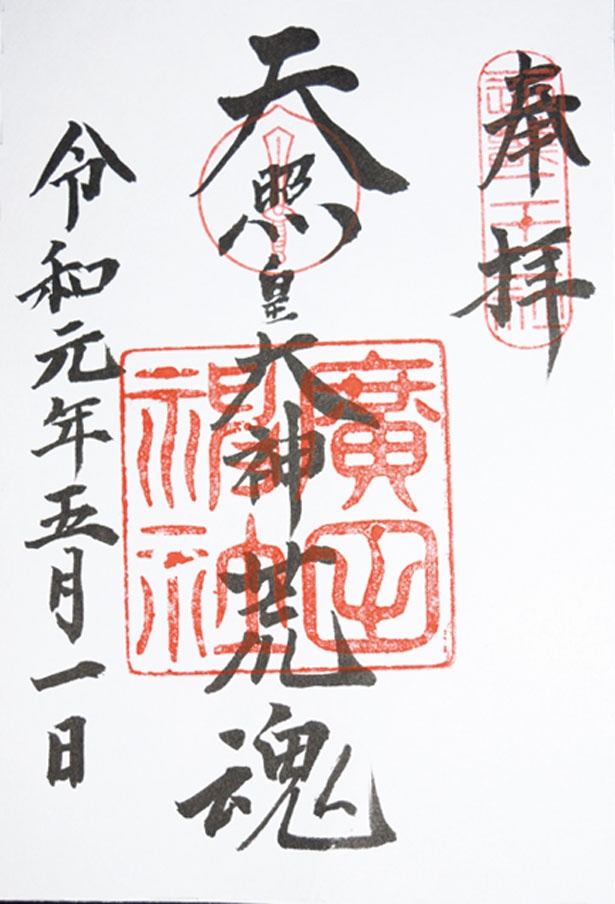 奉拝
天照皇大神荒魂
令和元年五月一日